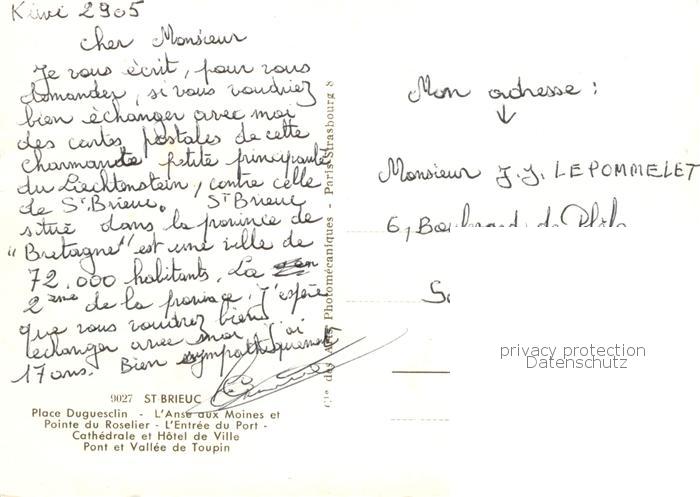 Kiwi 2905
Cher Monsieur
Je vous écrit, pour vous
demander, si vous voudriez
bien échanger avec moi
des cartes postales de cette
charmante petite principauté
du Liechtenstein, contre celle
de St Brieuc. St Brieuc
situé dans la province de
"Bretagne" est une ville de
72.000 habitants. La
2ème de la province. J'espère
que vous voudrez bien
échanger avec moi. J'ai
17 ans. Bien sympathiquement
9027 ST BRIEUC
Place Duguesclin - L'Anse aux Moines et
Pointe du Roselier - L'Entrée du Port -
Cathédrale et Hôtel de Ville
Pont et Vallée de Toupin
Cie des Arts Photomécaniques - Paris-Strasbourg 8
Mon adresse :
↓
Monsieur J.J. LEPOMMELET
6, Boulevard de
privacy protection
Datenschutz